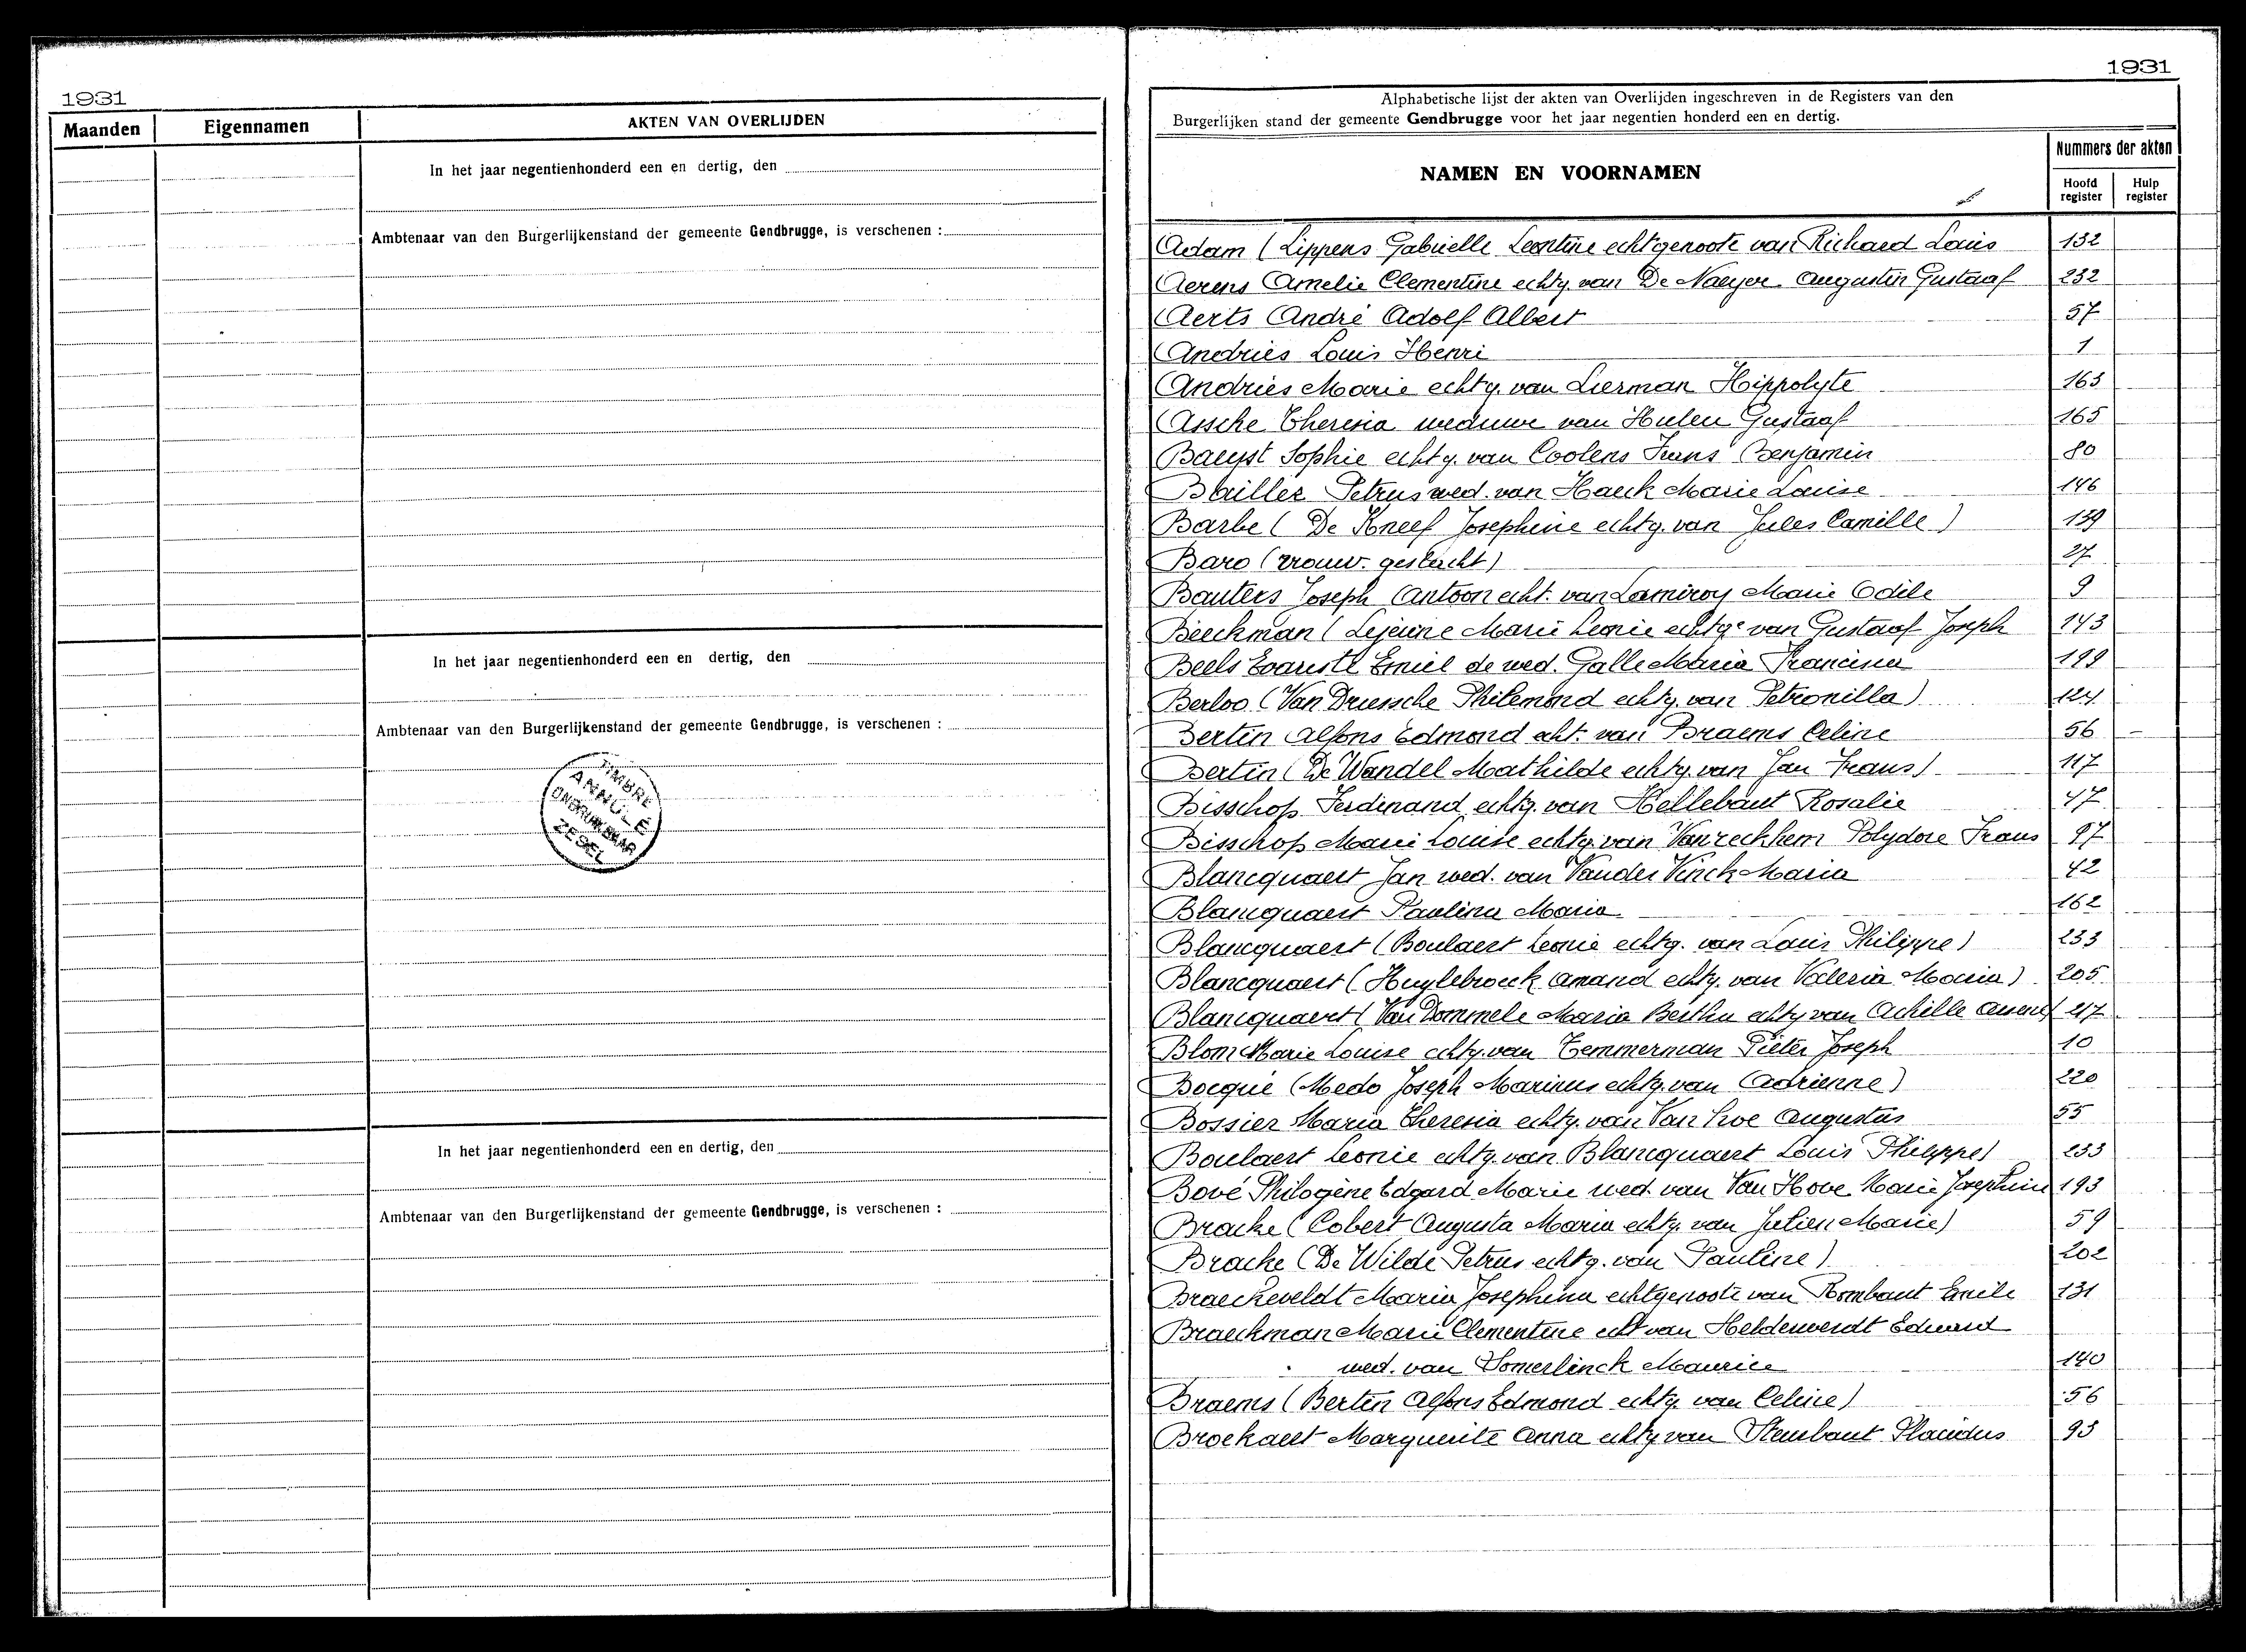 1931
Maanden
Eigennamen
AKTEN VAN OVERLIJDEN
In het jaar negentienhonderd een en dertig, den
Ambtenaar van den Burgerlijkenstand der gemeente Gendbrugge, is verschenen :
In het jaar negentienhonderd een en dertig, den
Ambtenaar van den Burgerlijkenstand der gemeente Gendbrugge, is verschenen :
TIMBRE
ANNULÉ
ONBRUIKBAAR
ZEGEL
In het jaar negentienhonderd een en dertig, den
Ambtenaar van den Burgerlijkenstand der gemeente Gendbrugge, is verschenen :
1931
Alphabetische lijst der akten van Overlijden ingeschreven in de Registers van den
Burgerlijken stand der gemeente Gendbrugge voor het jaar negentien honderd een en dertig.
NAMEN EN VOORNAMEN
Nummers der akten
Hoofd register
Hulp register
Adam (Lippens Gabrielle Leontine echtgenoote van Richard Louis 132
Aerens Amelie Clementine echtg. van De Naeyer Augustin Gustaaf 232
Aerts André Adolf Albert 57
Andries Louis Henri 1
Andries Marie echtg. van Lierman Hippolyte 163
Assche Theresia weduwe van Hulen Gustaaf 165
Bauyst Sophie echtg. van Coolens Frans Benjamin 80
Petrus wed. van Haeck Marie Louise 146
Barbe (De Kneef Josephine echtg. van Jules Camille) 139
Baro (vrouw. geslacht) 27
Bauters Joseph Antoon echt. van Lamiroy Marie Odile 9
Beeckman (Lejeune Marie Leonie echtge van Gustaaf Joseph 143
Beels Evarist Emiel de wed. Galle Maria Francisca 199
Berloo (Van Driessche Philemond echtg. van Petronilla) 124
Bertin Alfons Edmond echt. van Braems Celine 56
Bertin (De Wandel Mathilde echtg. van Jan Frans) 117
Bisschop Ferdinand echtg. van Hellebaut Rosalie 47
Bisschop Marie Louise echtg. van Vanreckhem Polydore Frans 97
Blancquaert Jan wed. van Vander Vinck Maria 42
Blancquaert Paulina Maria 162
Blancquaert (Boulaert Leonie echtg. van Louis Philippe) 233
Blancquaert (Huylebroeck Amand echtg. van Valeria Maria) 205
Blancquaert (Van Dommele Maria Bertha echtg van Achille 217
Blom Marie Louise echtg. van Temmerman Pieter Joseph 10
Bocqué (Medo Joseph Marinus echtg. van Adrienne) 220
Bossier Maria Theresia echtg. van Van hoe Augustus 55
Boulaert Leonie echtg. van Blancquaert Louis Philippe) 233
Bové Philogène Edgard Marie wed. van Van Hove Marie Josephine 193
Bracke (Cobert Augusta Maria echtg. van Julien Marie) 59
Bracke (De Wilde Petrus echtg. van Pauline) 202
Braeckeveldt Maria Josephina echtgenoote van Rombaut Emile 131
Braeckman Marie Clementine echt van Helderweirdt Eduard
wed. van Somerlinck Maurice 140
Braems (Bertin Alfons Edmond echtg. van Celine) 56
Broekaert Marguerite Anna echtg van Steubaut Placidus 93